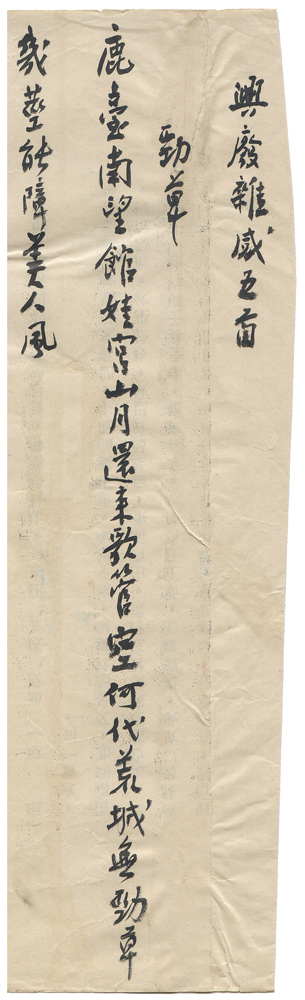 興廢雜感五首
勁草
鹿臺南望館娃宮山月還來歌管空何代荒城無勁草
幾莖能障美人風